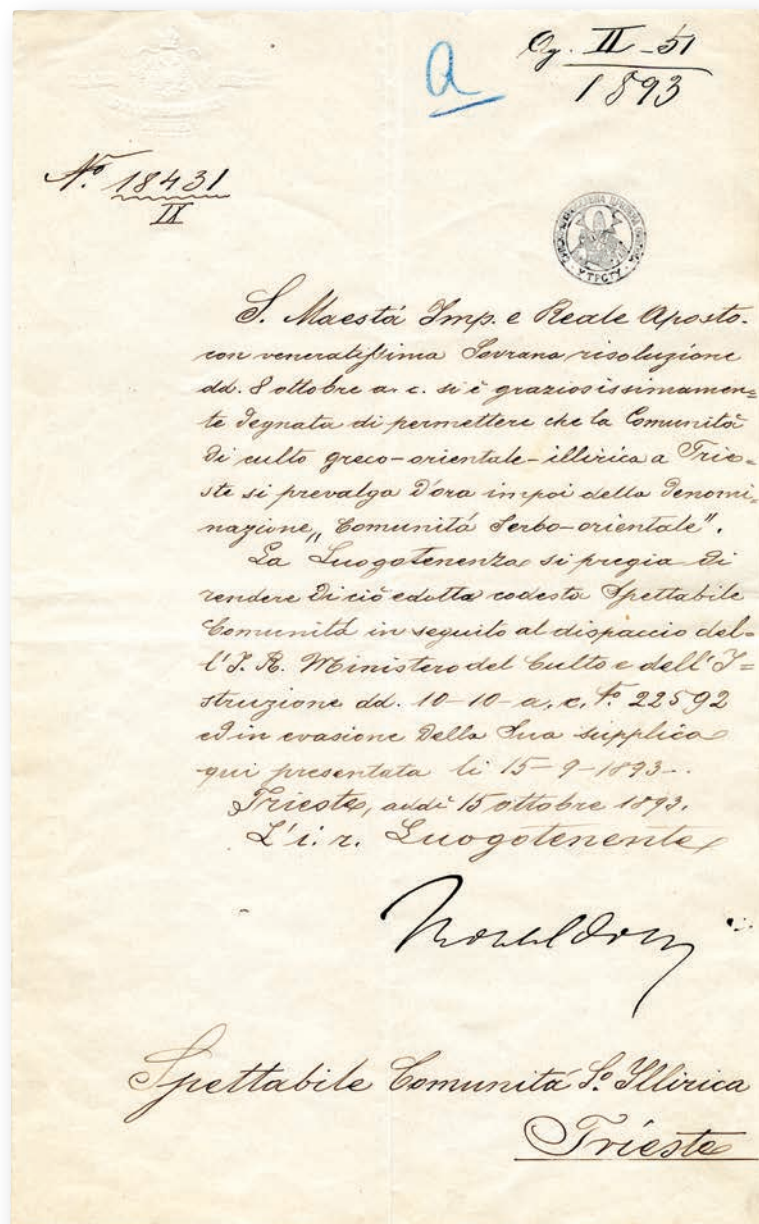 a
Og. II-51
1893
No. 18431
IX
У ТРСТУ
S. Maestá Imp. e Reale Aposto.
con veneratissima Sovrana risoluzione
dd. 8 ottobre a. c. si è graziosissimamen=
te degnata di permettere che la Comunità
di culto greco-orientale-illirica a Trie=
ste si prevalga d'ora impoi della denomi=
nazione „Comunitá Serbo-orientale".
La Luogotenenza si pregia di
rendere di ciò edotta codesta Spettabile
Comunità in seguito al dispaccio del=
l'I. R. Ministero del Culto e dell'I=
struzione dd. 10-10- a. c. No. 22592
ed in evasione della Sua supplica
qui presentata li 15-9-1893-.
Trieste, addì 15 ottobre 1893.
L'i. r. Luogotenente
Spettabile Comunitá So. Illirica
Trieste